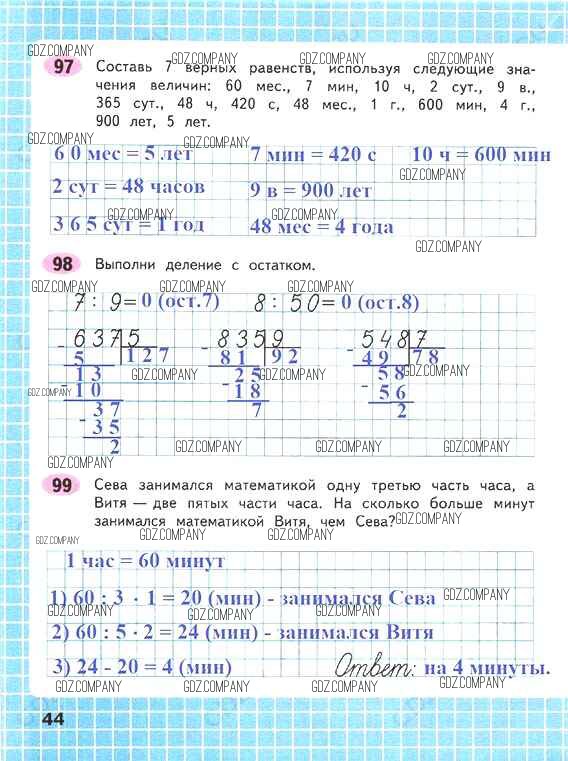 GDZ.COMPANY GDZ.COMPANY GDZ.COMPANY GDZ.COMPANY
97 Составь 7 верных равенств, используя следующие зна-
чения величин: 60 мес., 7 мин, 10 ч, 2 сут., 9 в.,
365 сут., 48 ч, 420 с, 48 мес., 1 г., 600 мин, 4 г.,
900 лет, 5 лет.
GDZ.COMPANY GDZ.COMPANY GDZ.COMPANY
60 мес = 5 лет 7 мин = 420 с 10 ч = 600 мин
GDZ.COMPANY
2 сут = 48 часов 9 в = 900 лет
GDZ.COMPANY
365 сут = 1 год 48 мес = 4 года
GDZ.COMPANY
98 Выполни деление с остатком.
GDZ.COMPANY GDZ.COMPANY GDZ.COMPANY GDZ.COMPANY
7 : 9 = 0 (ост.7) 8 : 50 = 0 (ост.8)
- 637 5 - 835 9 - 548 7
5 127 81 92 49 78
- 13 - 25 - 58
GDZ.COMPANY GDZ.COMPANY GDZ.COMPANY
10 18 56
37 7 2
- 35
2
GDZ.COMPANY GDZ.COMPANY GDZ.COMPANY GDZ.COMPANY
99 Сева занимался математикой одну третью часть часа, а
Витя — две пятых части часа. На сколько больше минут
занимался математикой Витя, чем Сева?
GDZ.COMPANY
GDZ.COMPANY GDZ.COMPANY GDZ.COMPANY GDZ.COMPANY
1 час = 60 минут
1) 60 : 3 · 1 = 20 (мин) - занимался Сева
GDZ.COMPANY
GDZ.COMPANY GDZ.COMPANY GDZ.COMPANY
2) 60 : 5 · 2 = 24 (мин) - занимался Витя
3) 24 - 20 = 4 (мин) Ответ: на 4 минуты.
GDZ.COMPANY GDZ.COMPANY GDZ.COMPANY GDZ.COMPANY
44